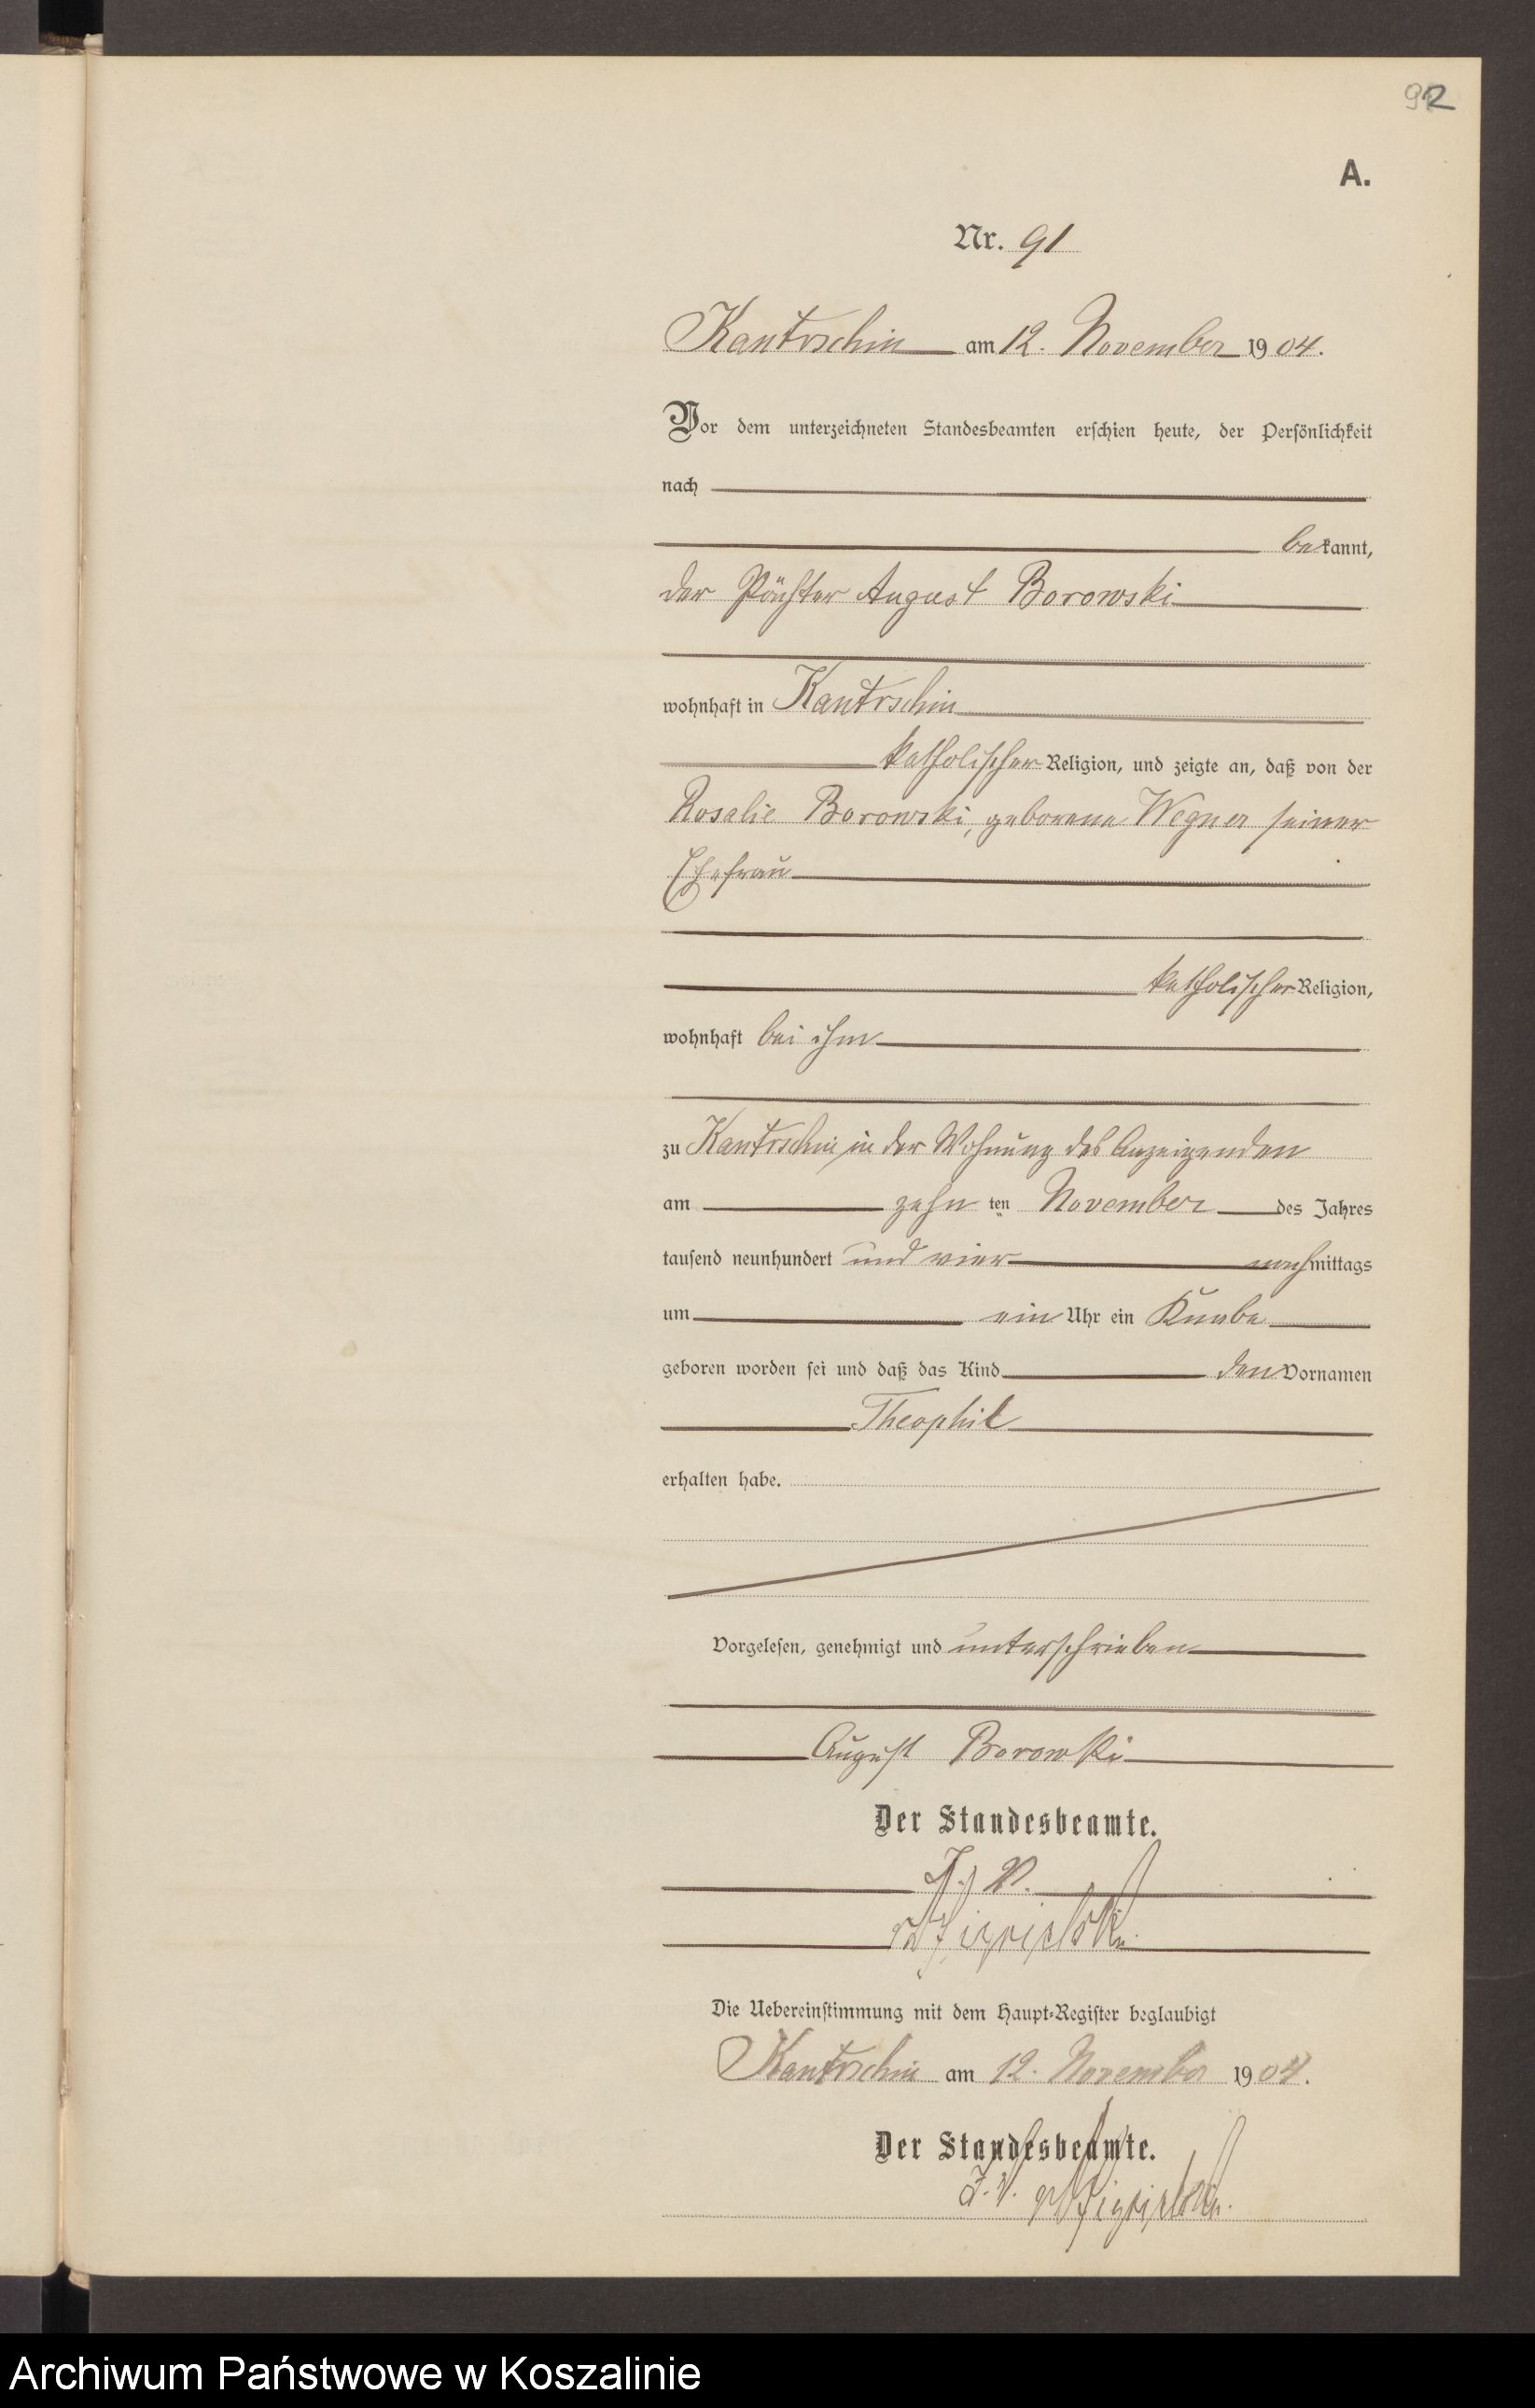 92
A.
Nr. 91
Kantrschin am 12. November 1904.
Vor dem unterzeichneten Standesbeamten erschien heute, der Persönlichkeit
nach
bekannt,
der Pächter August Borowski
wohnhaft in Kantrschin
katholischer Religion, und zeigte an, daß von der
Rosalie Borowski, geborene Wegner seiner
Ehefrau
katholischer Religion,
wohnhaft bei ihm
zu Kantrschin in der Wohnung des Anzeigenden
am zehn ten November des Jahres
tausend neunhundert und vier nachmittags
um ein Uhr ein Knabe
geboren worden sei und daß das Kind den Vornamen
Theophil
erhalten habe.
Vorgelesen, genehmigt und unterschrieben
August Borowski
Der Standesbeamte.
J. V.
Die Uebereinstimmung mit dem Haupt-Register beglaubigt
Kantrschin am 12. November 1904.
Der Standesbeamte.
J. V.
Archiwum Państwowe w Koszalinie